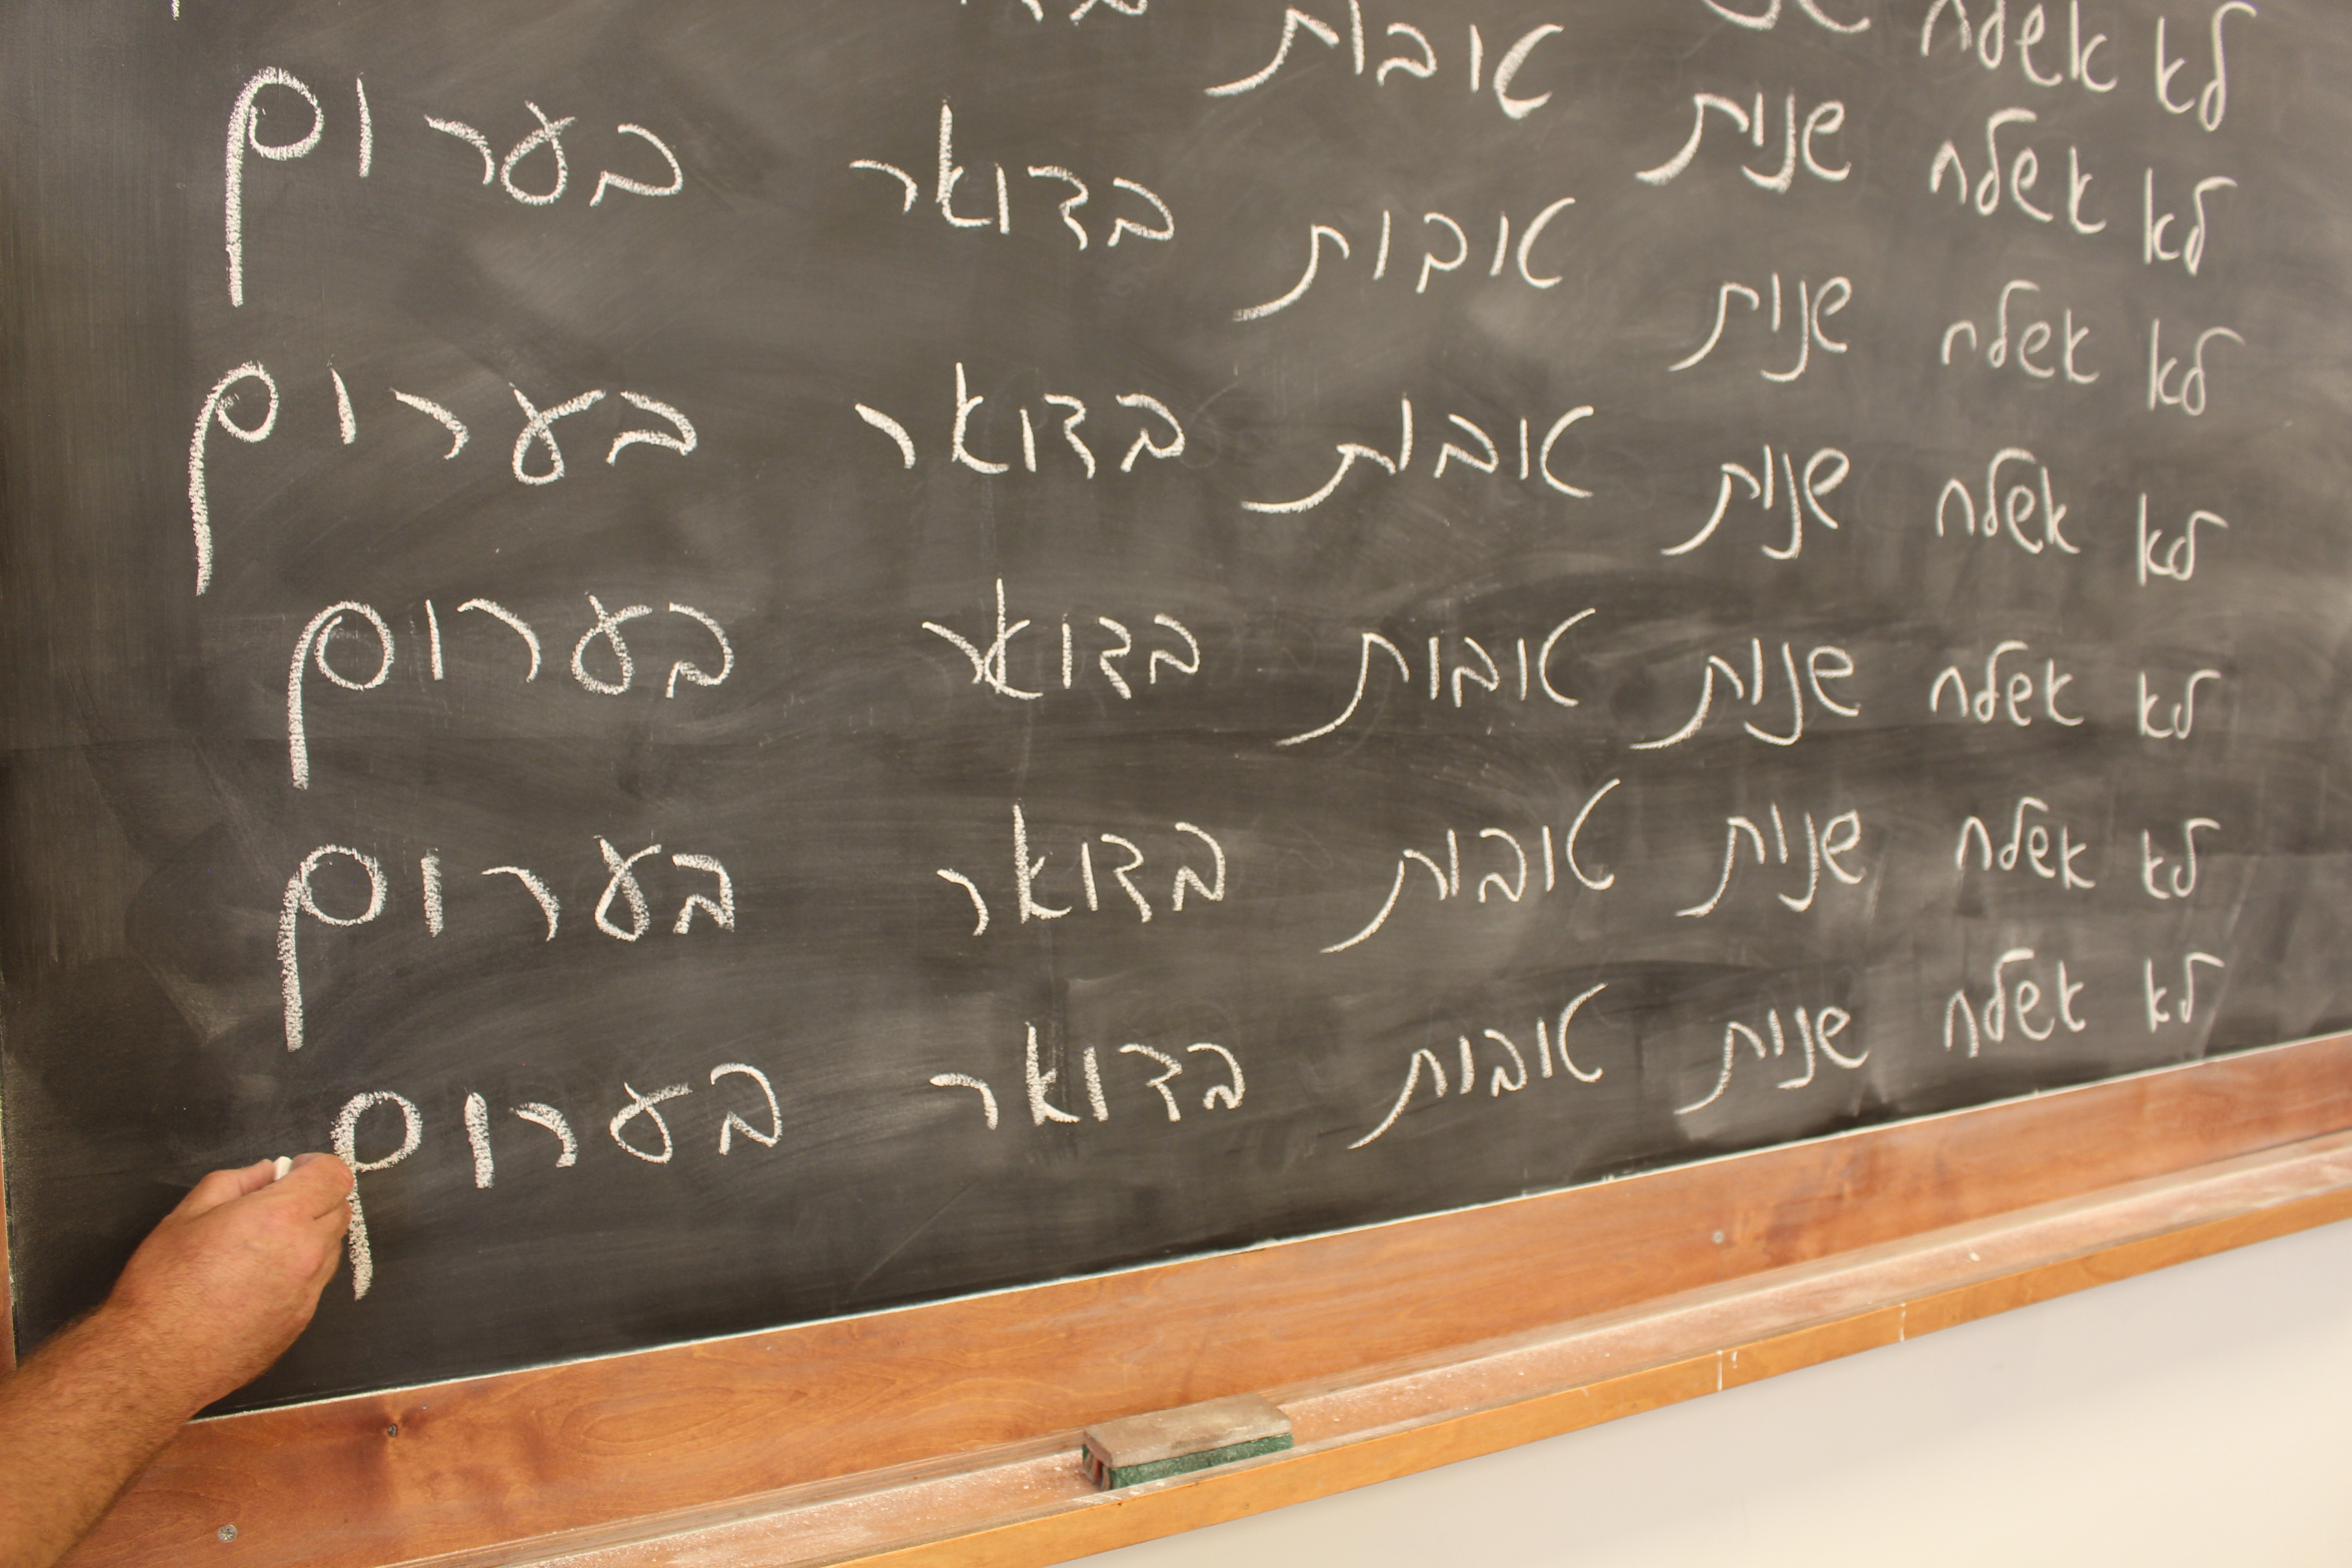 לא אשלח
לא אשלח שנות טובות
לא אשלח שנות טובות בדואר בערום
לא אשלח שנות טובות בדואר בערום
לא אשלח שנות טובות בדואר בערום
לא אשלח שנות טובות בדואר בערום
לא אשלח שנות טובות בדואר בערום